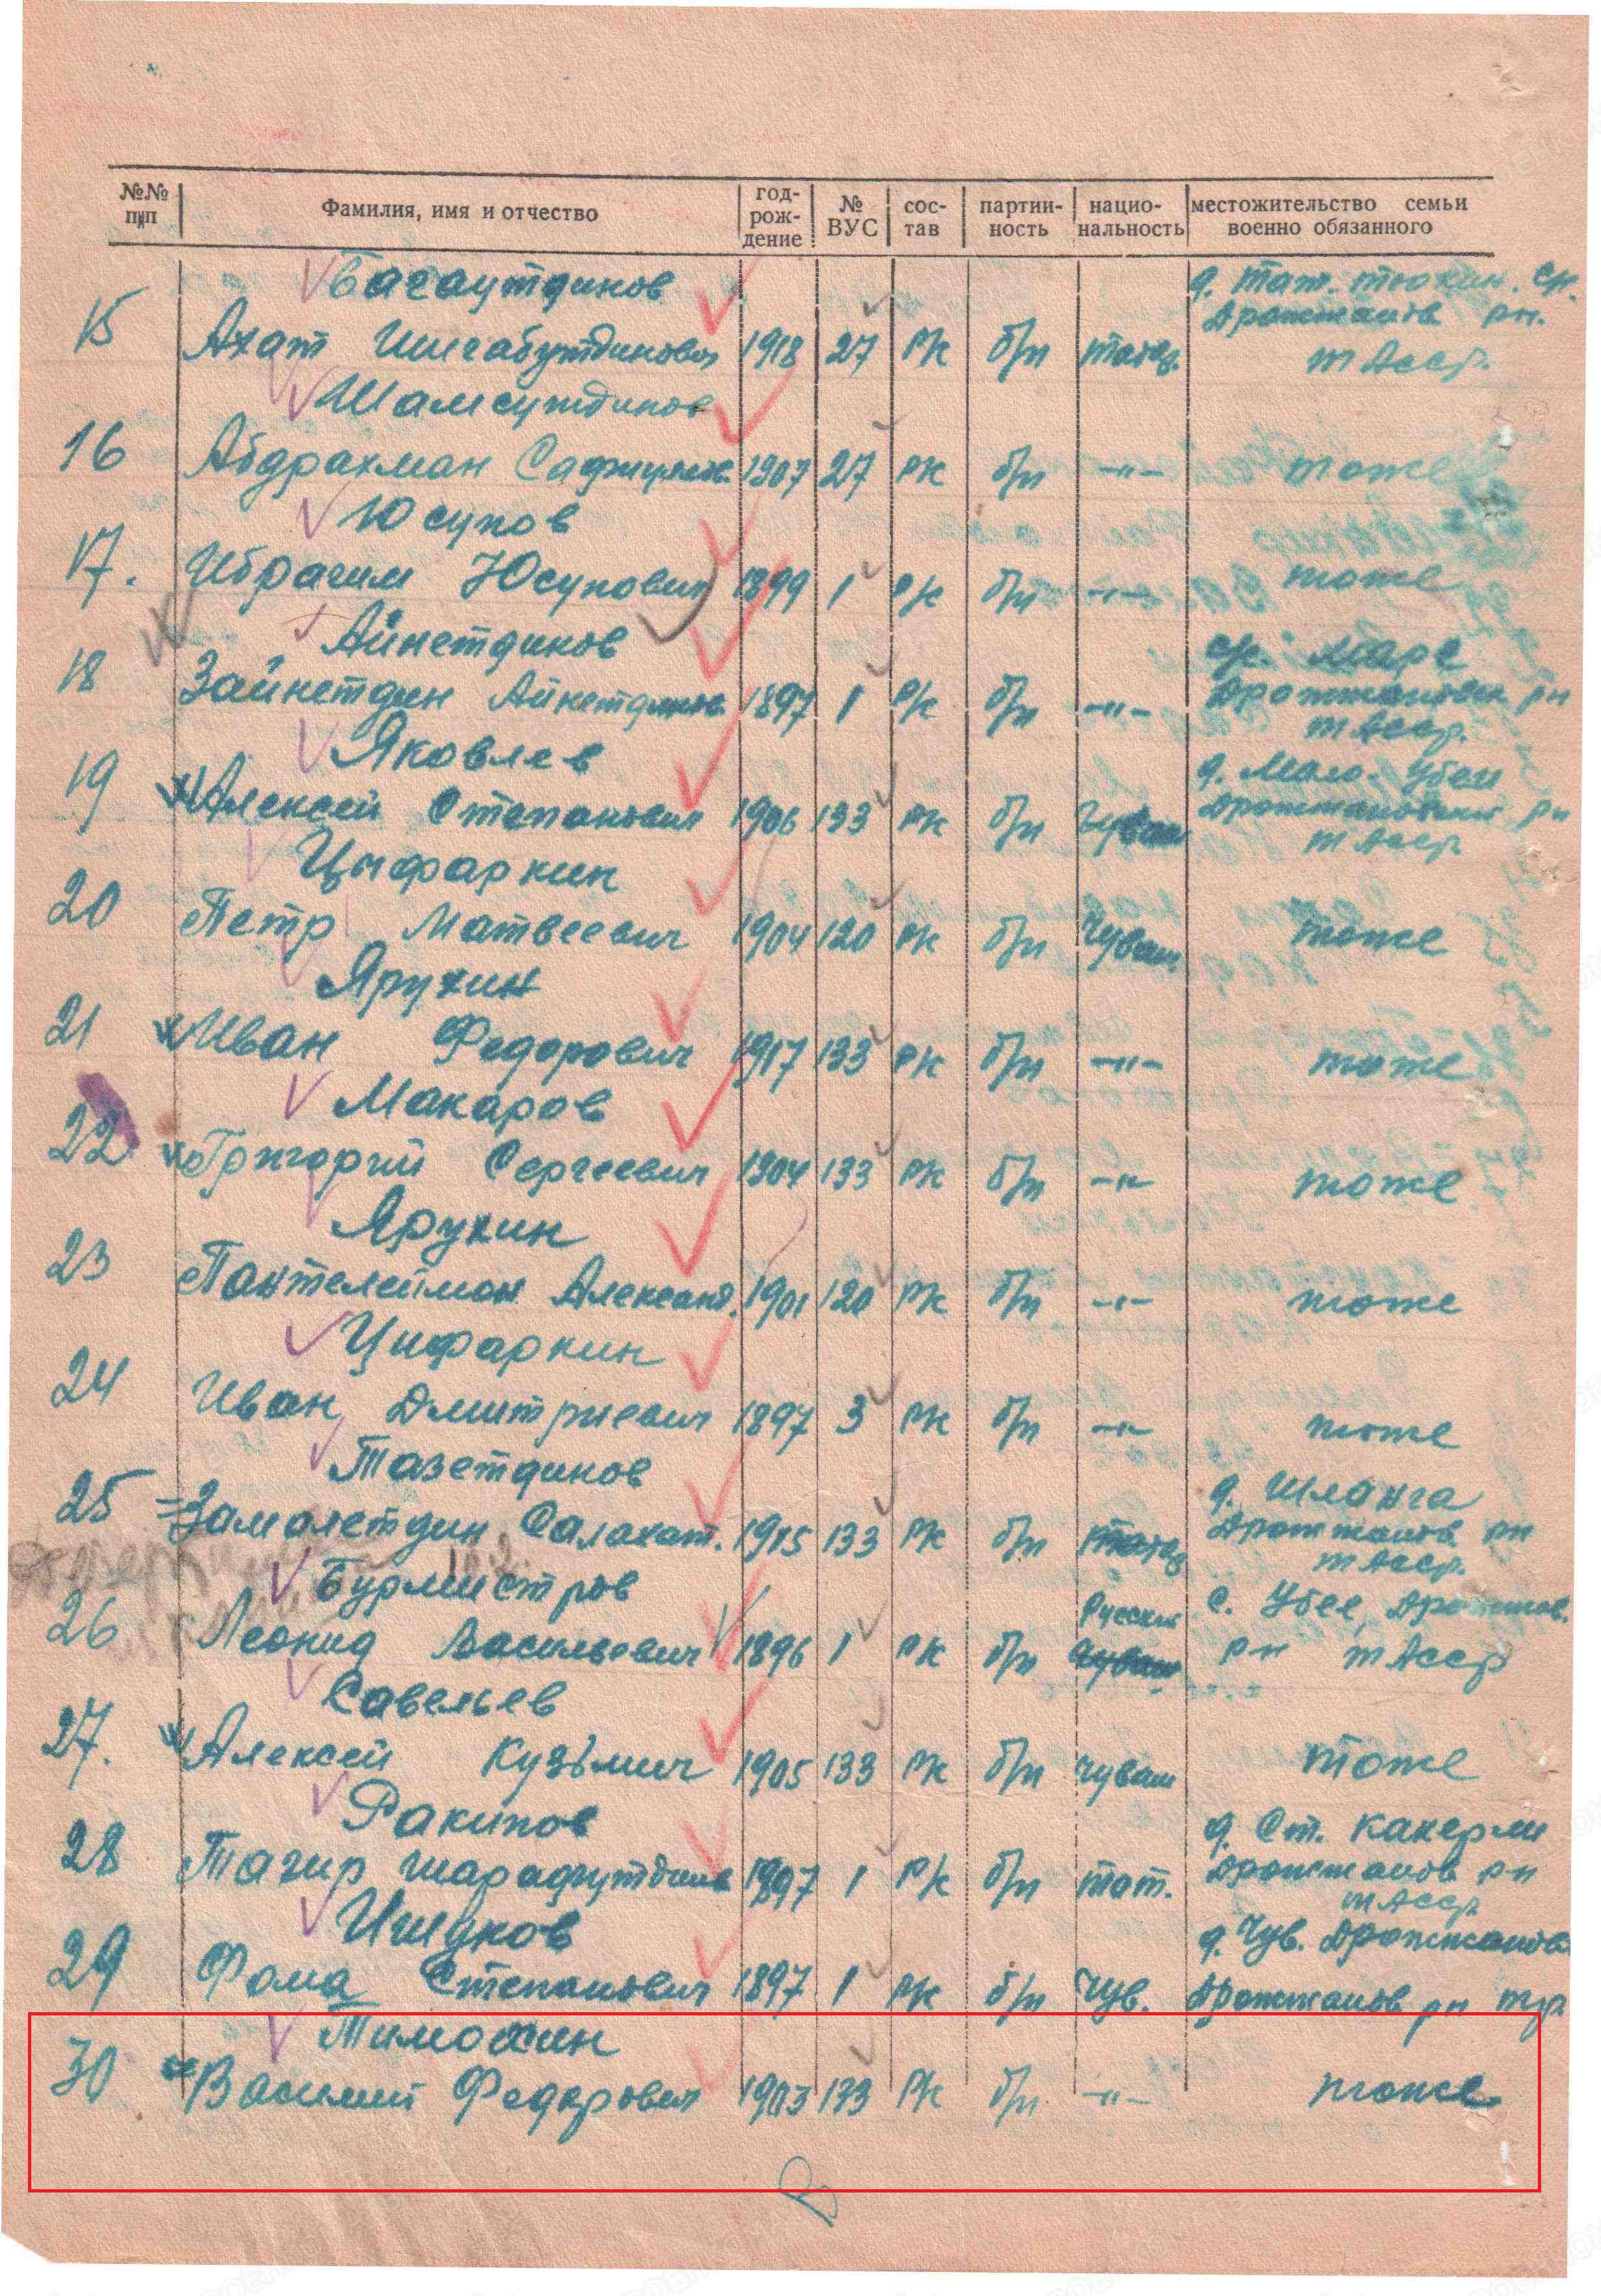 №№ п/п Фамилия, имя и отчество год-рож-дение № ВУС сос-тав партий-ность нацио-нальность местожительство семьи военно обязанного
Багаутдинов д. Тат. тюкин. ср.
15 Ахат Шигабутдинович 1918 27 р/к б/п татар. Дрожжанов рн. тАсср.
Шамсутдинов
16 Абдрахман 1907 27 р/к б/п -"- тоже
Юсупов
17. Ибрагим Юсупович 1899 1 р/к б/п -"- тоже
Айнетдинов
18 Зайнетдин Айнетдинов 1897 1 р/к б/п -"- Дрожжановск рн тАсср.
Яковлев д. Мало. Убеи
19 Алексей Степанович 1906 133 р/к б/п чуваш Дрожжановский рн тАсср
Цыфаркин
20 Петр Матвеевич 1904 120 р/к б/п чуваш. тоже
Ярухин
21 Иван Федорович 1917 133 р/к б/п -"- тоже
Макаров
22 Григорий Сергеевич 1904 133 р/к б/п -"- тоже
Ярухин
23 Пантелеймон Александ. 1901 120 р/к б/п -"- тоже
Цифаркин
24 Иван Дмитриевич 1897 3 р/к б/п -"- тоже
Тазетдинов д. Шланга
25 Замалетдин Салахат. 1915 133 р/к б/п татар Дрожжанов рн тАсср.
Бурмистров Русский с. Убее Дрожжанов.
26 Леонид Васильевич 1896 1 р/к б/п чуваш рн тАсср
Савельев
27. Алексей Кузьмич 1905 133 р/к б/п чуваш тоже
Ракипов д. Ст. Какерли
28 Тагир Шарафутдинов 1897 1 р/к б/п тат. Дрожжанов рн тАсср
Ишуков д. Чув. Дрожжанов
29 Фома Степанович 1897 1 р/к б/п чув. Дрожжанов рн тар
Тимохин
30 Василий Федорович 1903 133 р/к б/п -"- тоже